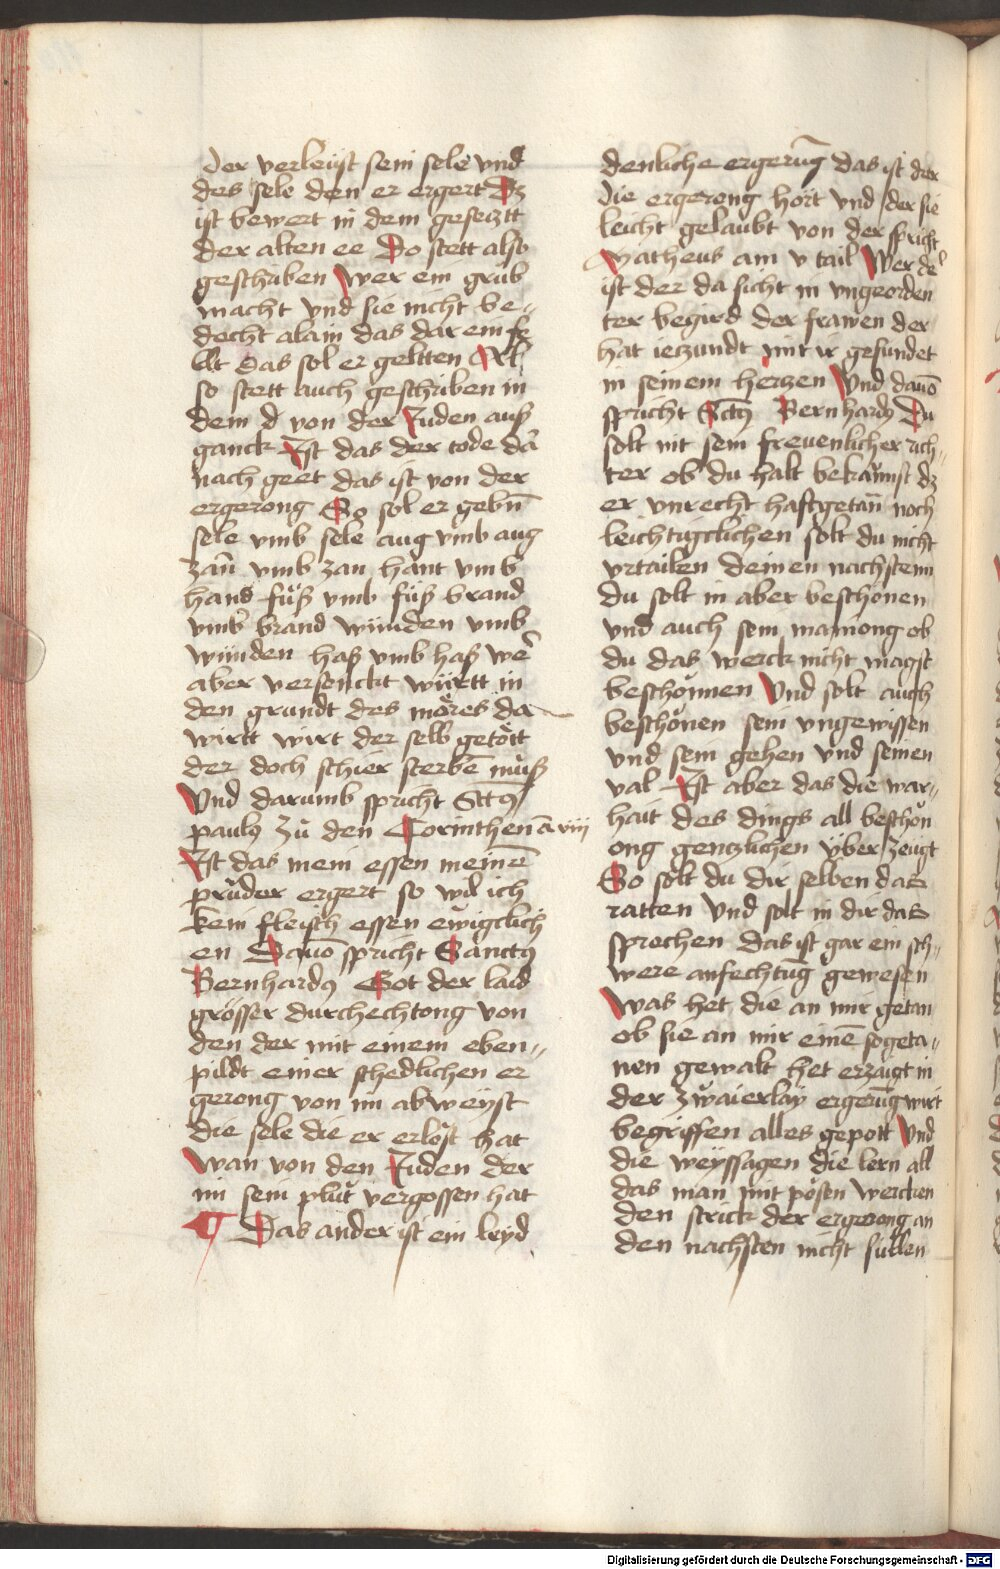 der verleüst sein sele vnd
des sele den er ergert Dz
ist bewert in dem gesecztt
der alten ee Do stett also
geschriben Wer ein grub
macht vnd sie nicht be„
deckt alain das dar ein fe
llt das sol er geltten Al
so stett auch geschriben in
dem d von der Juden auß
ganck Ist das der tode dar
nach geet das ist von der
ergerong So sol er gebñ
sele vmb sele aug vmb aug
zañ vmb zan hant vmb
hand füß vmb füß brand
vmb brand wünden vmb
wünden haß vmb haß we᷑
aber versenckt württ in
den grundt des möres da
wirtt wirt der selb getött
der doch schier sterbē müß
Vnd darumb spricht Sctꝯ
paulꝯ zů den Corinthen ā viij
Ist das mein essen meinē
průder ergert so wil ich
kein fleisch essen ewigclich
en Dauō spricht Sanctꝯ
Bernhardꝯ Got der laid
grösser durchechtong von
den der mit einem eben„
pildt einer schedlichen er
gerong von im abweyst
die sele die er erlöst hat
Wan von den Juden der
im sein plůt vergossen hat
¶ Das ander ist ein leyd
denliche ergerūg das ist der
die ergerong hört vnd der sie
leicht gelaubt von der spricht
Matheus am v tail Wer de
ist der da sicht in vngeorden
ter begird der frawen der
hat ieczundt mit ir gesundet
in seinem herczen Vnd dauō
spricht Sctꝯ Bernhardꝯ Du
solt nit sein freuenlicher rich„
ter ob du halt bekannst dz
er vnrecht hast getañ noch
leichtigclichen solt du nicht
vrtailen deinen nachstenn
du solt in aber beschönen
vnd auch sein mainong ob
du das werck nicht magst
beschönnen Vnd solt auch
beschönen sein vngewissen
vnd sein gehen vnd seinen
val Ist aber das die war„
hait des dings all beschön
ong genczlichen über zeugt
So solt du dir selben das
ratten Vnd solt in dir das
sprechen das ist gar ein sch„
were anfechtūg gewesen
Was het die an mir getan
ob sie an mir einē sogeta„
nen gewalt het erzaigt in
der zwaierlay ergerūg wirt
begriffen alles gepott Vnd
die weyssagen die lern all
das man mit pösen wercken
den strick der ergerong an
den nachsten nicht süllen
Digitalisierung gefördert durch die Deutsche Forschungsgemeinschaft - DFG